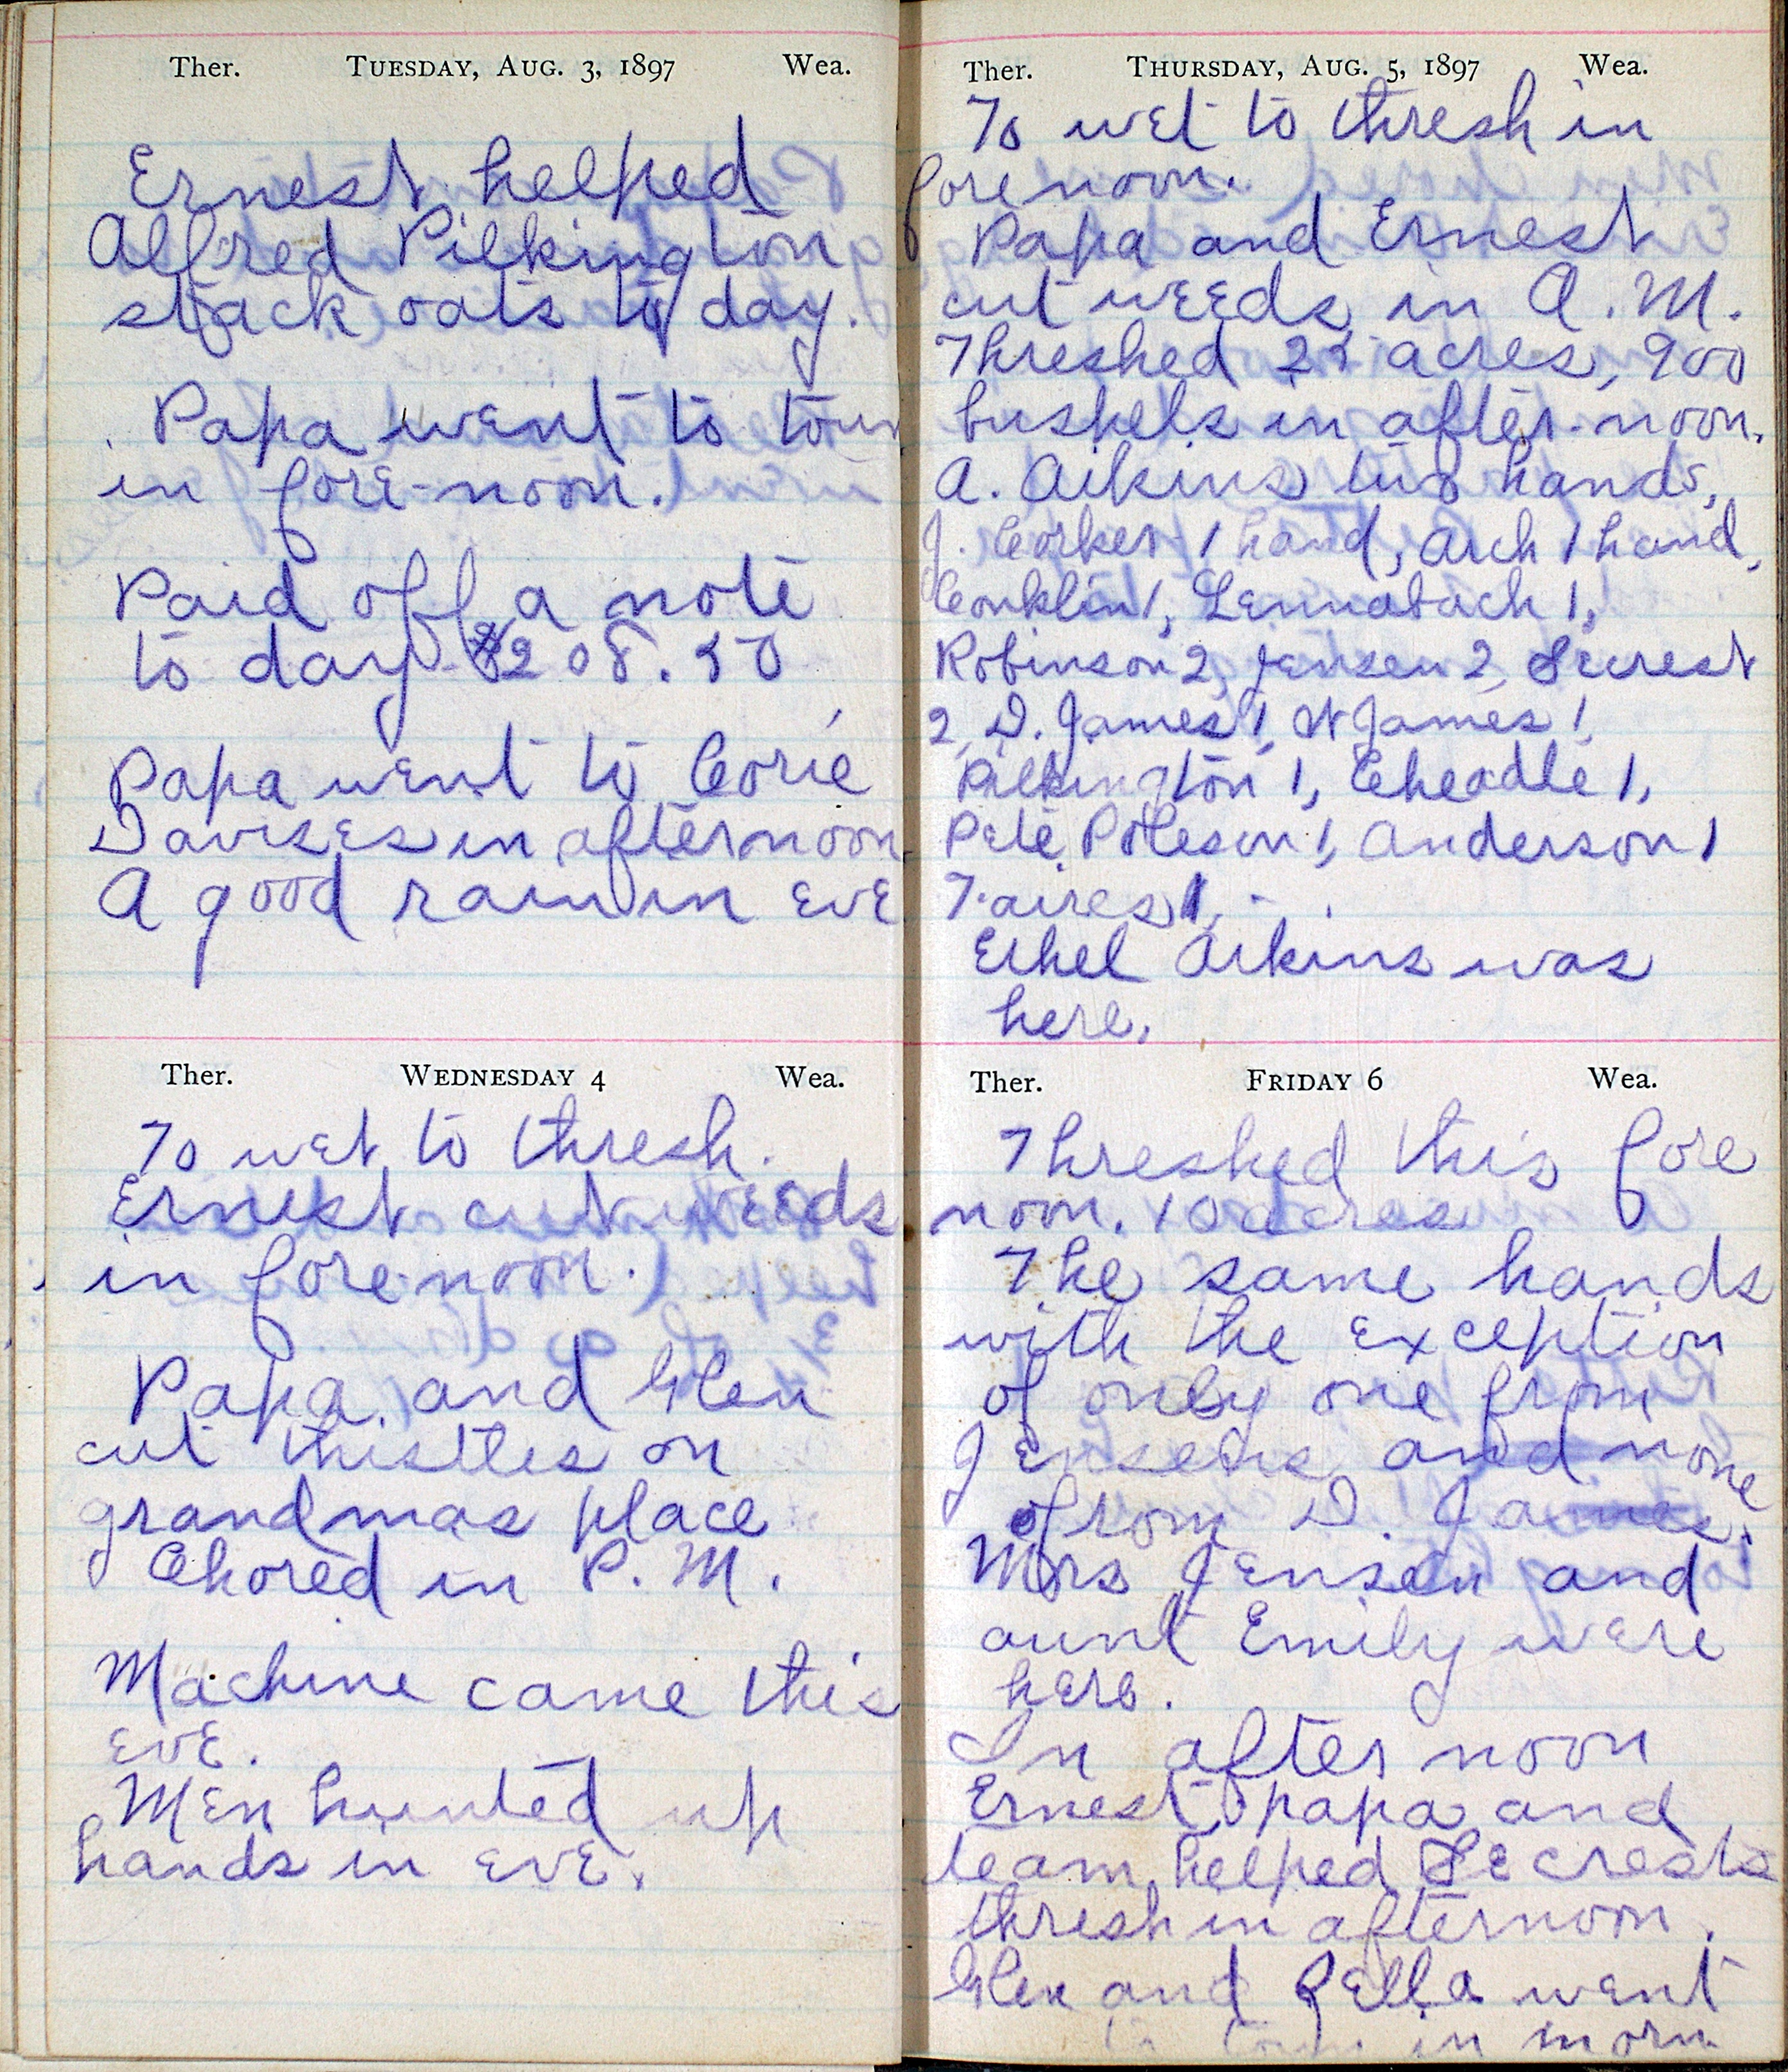 Ther. Tuesday, Aug. 3, 1897 Wea.
Ernest helped
Alfred Pilkington
stack oats to day.
Papa went to town
in fore-noon.
Paid off a note
to day $208.50
Papa went to Corie
Davises in afternoon
A good rain in eve
Ther. Wednesday 4 Wea.
To wet to thresh.
Ernest cut weeds
in fore-noon.
Papa and Glen
cut thistles on
grandmas place
Chored in P. M.
Machine came this
eve.
Men hunted up
hands in eve.
Ther. Thursday, Aug. 5, 1897 Wea.
To wet to thresh in
forenoon.
Papa and Ernest
cut weeds in A. M.
Threshed acres, 900
bushels in after-noon.
A. Aikins two hands,
J. Corker 1 hand, Arch 1 hand,
Conklin 1, Lennabach 1,
Robinson 2, Jensen 2, Secrest
2, D. James 1, James 1,
Pilkington 1, Cheadle 1,
Pete Poleson 1, Anderson 1
Taires 1,
Ethel Aikins was
here.
Ther. Friday 6 Wea.
Threshed this fore
noon. 10 acres
The same hands
with the exception
of only one from
Jensens and none
from D. James.
Mrs Jensen and
aunt Emily were
here.
In after noon
Ernest papa and
team helped Secrests
thresh in afternoon.
Glen and Rella went
to town in morn